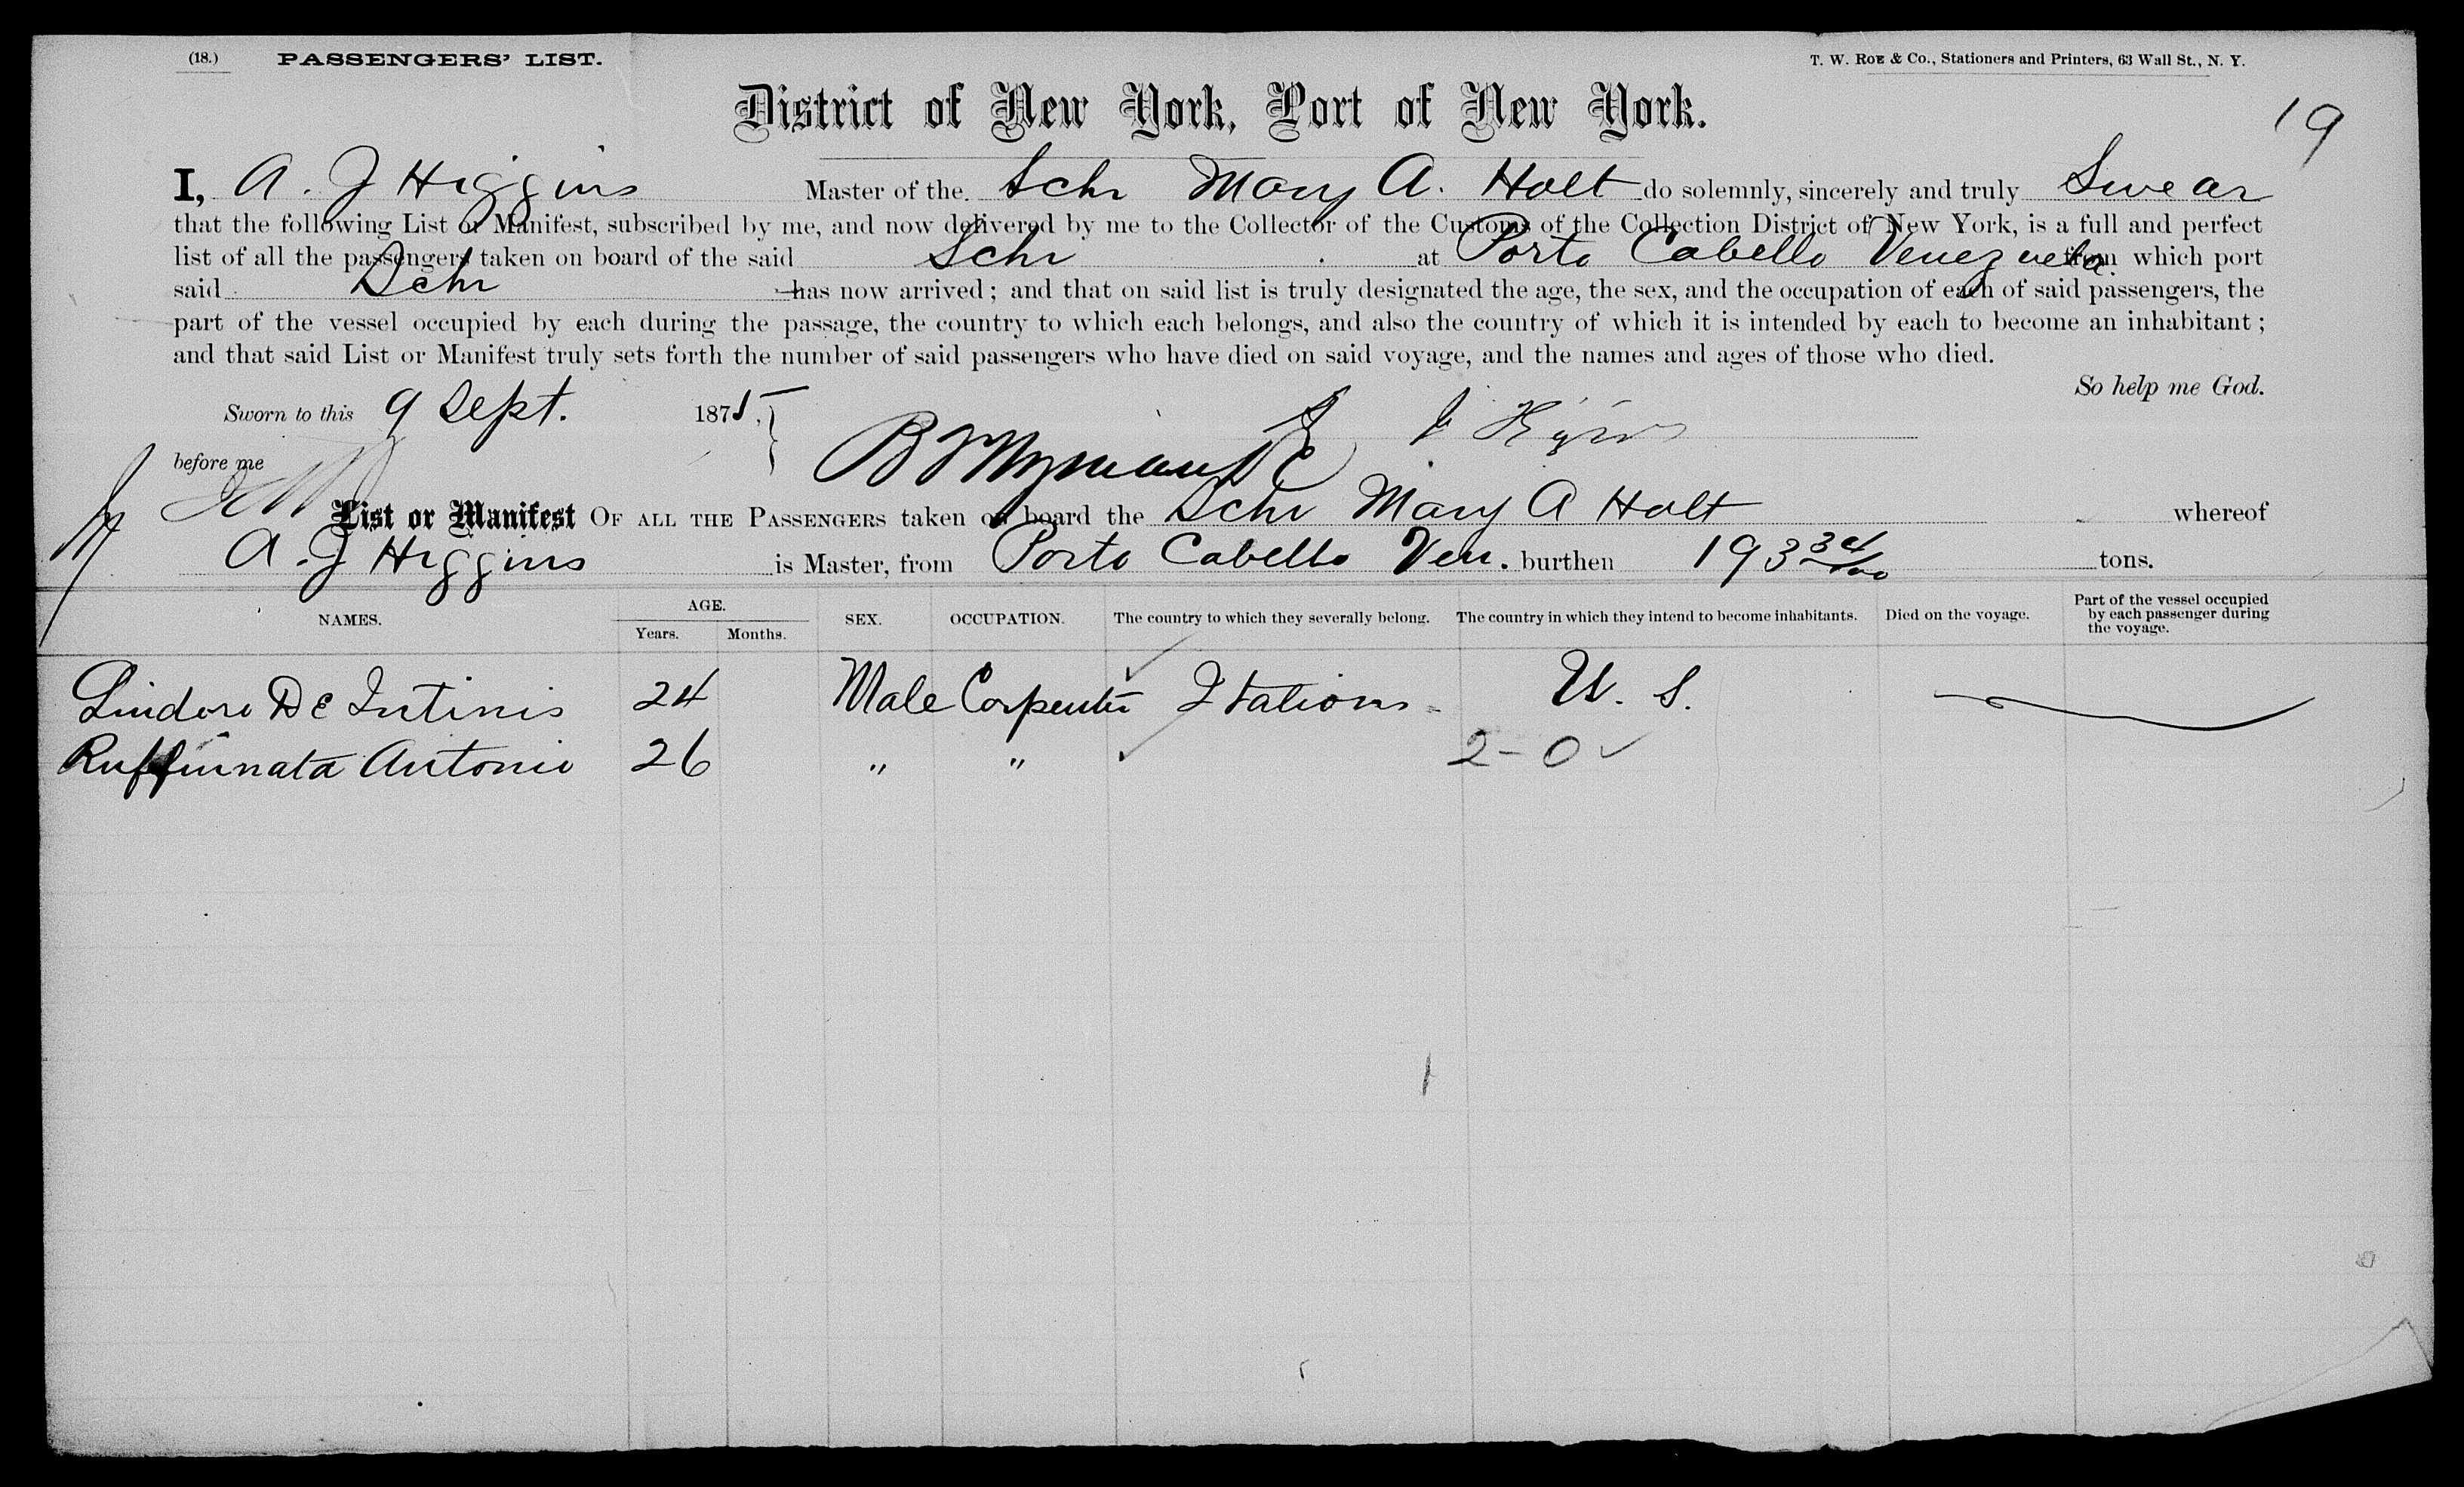 (18.) PASSENGERS' LIST. T. W. ROE & Co., Stationers and Printers, 63 Wall St., N. Y.
District of New York, Port of New York.
19
I, A. J Higgins Master of the Schr Mary A. Holt do solemnly, sincerely and truly Swear
that the following List or Manifest, subscribed by me, and now delivered by me to the Collector of the Customs of the Collection District of New York, is a full and perfect
list of all the passengers taken on board of the said Schr at Porto Cabello Venezuela. from which port
said Schr has now arrived; and that on said list is truly designated the age, the sex, and the occupation of each of said passengers, the
part of the vessel occupied by each during the passage, the country to which each belongs, and also the country of which it is intended by each to become an inhabitant;
and that said List or Manifest truly sets forth the number of said passengers who have died on said voyage, and the names and ages of those who died.
So help me God.
Sworn to this 9 Sept. 1875,
before me
List or Manifest OF ALL THE PASSENGERS taken on board the Schr Mary A Holt whereof
A. J Higgins is Master, from Porto Cabello Ven. burthen 193 34/100 tons.
NAMES. AGE. Years. Months. SEX. OCCUPATION. The country to which they severally belong. The country in which they intend to become inhabitants. Died on the voyage. Part of the vessel occupied by each passenger during the voyage.
Lindoro De Intinis 24 Male Carpenter Italians U. S.
Ruffinnata Antonio 26 " " 2-0